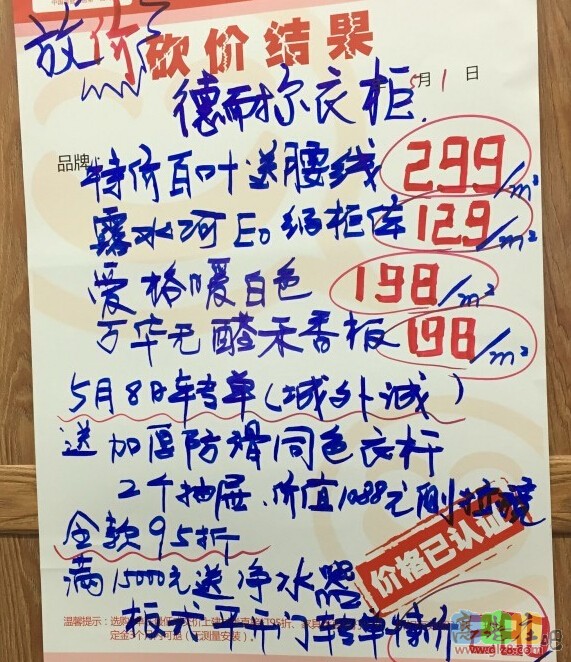 放价砍价结果
5月1日
德而称衣柜
品牌
特价百叶送腰线 299/m²
露水河E0级柜体 129/m²
爱格暖白色 198/m²
万华无醛禾香板 198/m²
5月8日转单(城外诚)
送加厚防滑同色衣杆
2个抽屉、价值1088元侧拉镜
全款95折
价格已认证
满15000元送净水器
温馨提示:
柜 平开门转单特价